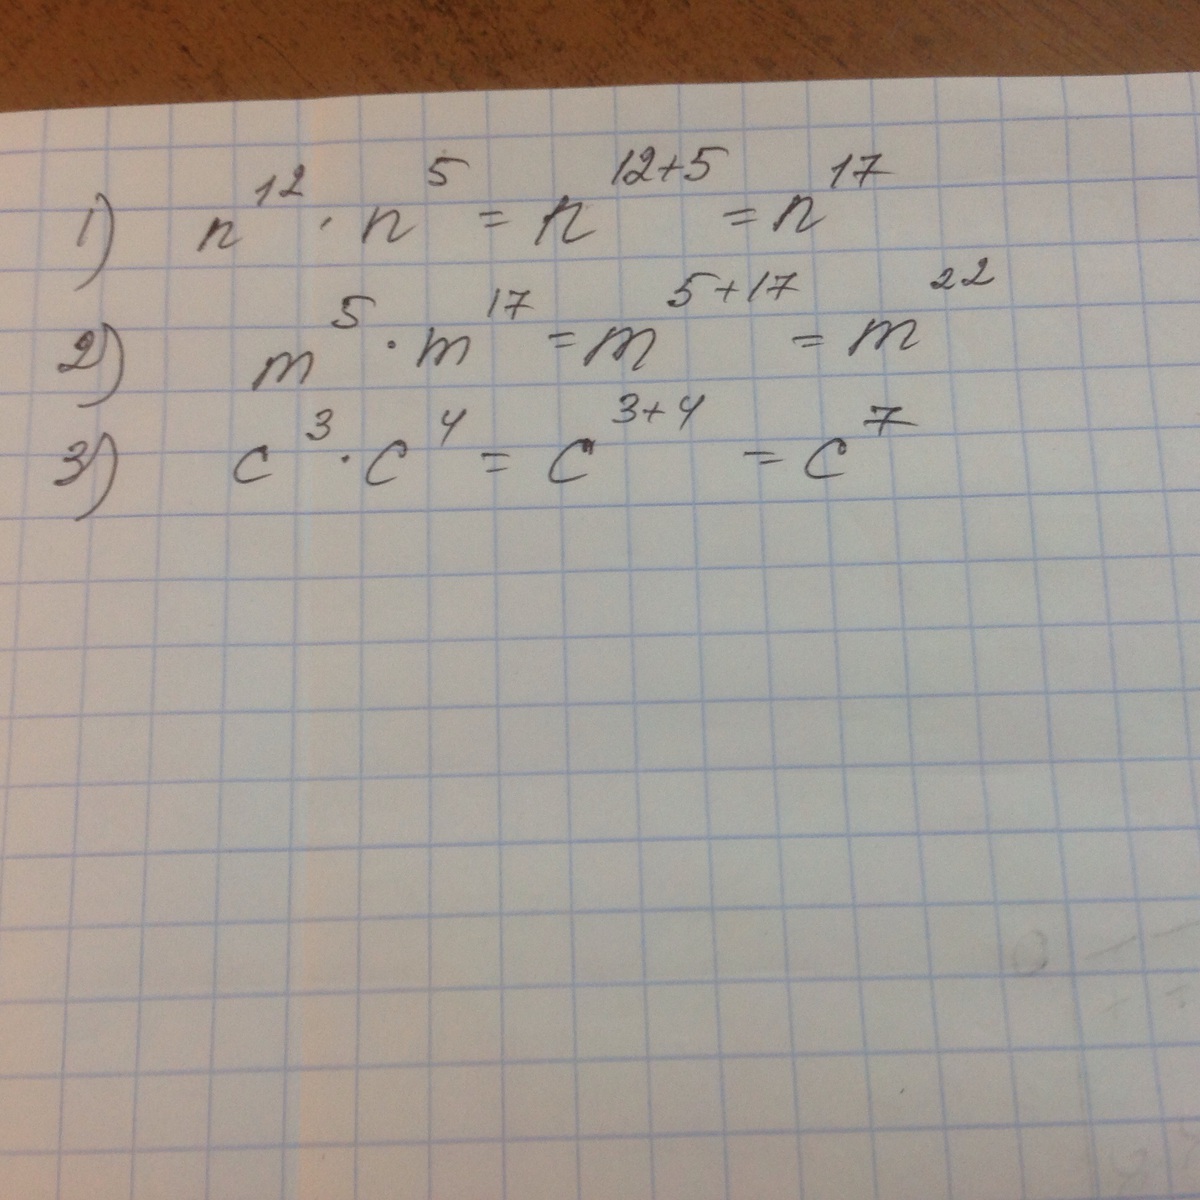 1) n¹² · n⁵ = n¹²⁺⁵ = n¹⁷
2) m⁵ · m¹⁷ = m⁵⁺¹⁷ = m²²
3) c³ · c⁴ = c³⁺⁴ = c⁷